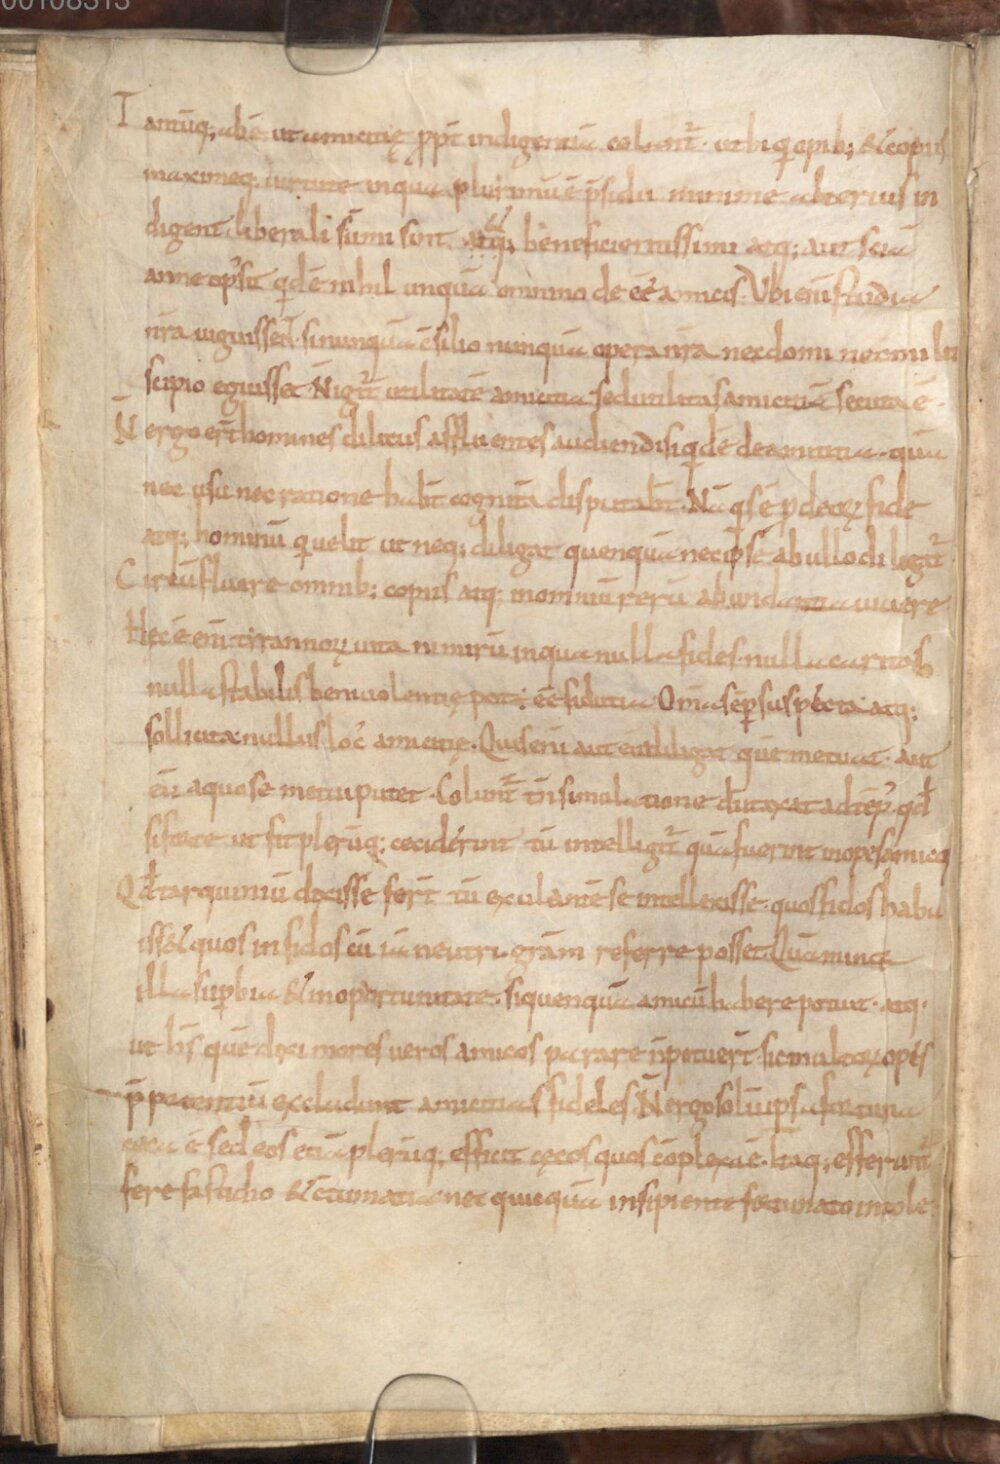 00108313
Tantūq; abē ut amicitię ꝓpt indigentiā colant᷑ · ut hi qͥ opib; & copiis
maximeq; uirtute in qua plurimū ē p̄sidii minime alterius in
digent liberalissimi sint atq; beneficientissimi atq; aut sciā
anne opꝰ sit qͥdē nihil unquā omnino de eē amicis · Vbi eni studia
nr̄a uiguissent · si nunquā c̄silio nunquā opera nr̄a nec domi nec mili
scipio eguisset · N̄ igit᷑ utilitatē amicitia sed utilitas amicitiā secuta ē ·
N̄ ergo erūt homines dilitiis affluentes audiendi si qͥdē de amicitia · quā
nec usu nec ratione habēt cognitā disputabt̄ · Nā qͥs ē p deoꝝ fidē
atq; hominū qͥ uelit ut neq; diligat quenquā nec ipse ab ullo diligat᷑
Circūfluere omnib; copiis atq; in omniū rerū abundantia uiuere
Hec ē eni tirannoꝝ uita nimirū in qua nulla fides · nulla caritas
nulla stabilis beniuolentię potē eē fiducia · Omīa semp suspecta atq;
sollicita nullus locꝰ amicitię · Quis eni aut eū diligat quē metuat · aut
eū a quo se metui putet · Colunt᷑ tn̄ simulatione dūtaxat ad tēpꝰ · qd̄
si forte ut fit plerūq; ceciderint tū intelligit᷑ quā fuerint inopes amicoꝝ
Qd̄ tarquiniū dixisse fert̄ tū exulantē se intellexisse · quos fidos habu
iss& quos infidos cū iā neutri · grām referre posset · Quāmincꝫ
illa supbia & inoportunitate · si quenquā amicū habere potuit · atq ·
ut hꝰ quē dixi mores ueros amicos parare n̄ potuert̄ · sic multoꝝ opes
p̄potentiū excludunt amicitias fideles · N̄ ergo solū ipsa fortuna
ceca ē sed eos etiā plerūq; efficit cęcos quos cōplexa ē · Itaq; efferunt᷑
fere fastidio & cōtumatia nec quiquā insipiente fortunato intole